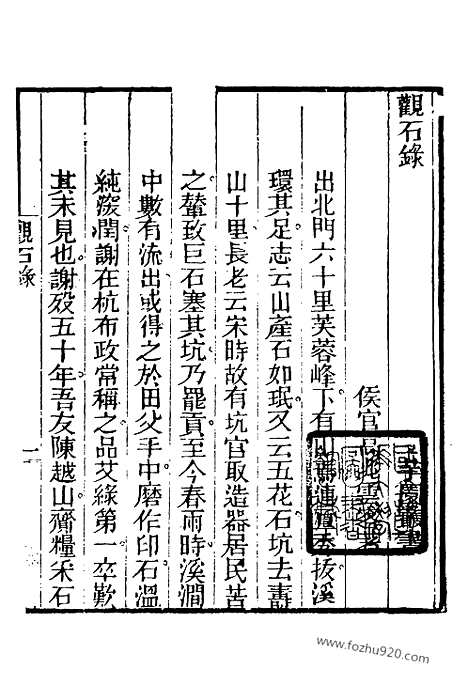 觀石錄
侯官高兆雲客著
出北門六十里芙蓉峰下有山焉連亘秀拔溪
環其足志云山產石如珉又云五花石坑去壽
山十里長老云宋時故有坑官取造器居民苦
之輦致巨石塞其坑乃罷貢至今春雨時溪澗
中數有流出或得之於田父手中磨作印石溫
純深潤謝在杭布政常稱之品艾綠第一卒歎
其未見也謝歿五十年吾友陳越山齎糧釆石
觀石錄 一
www.fozhu920.com